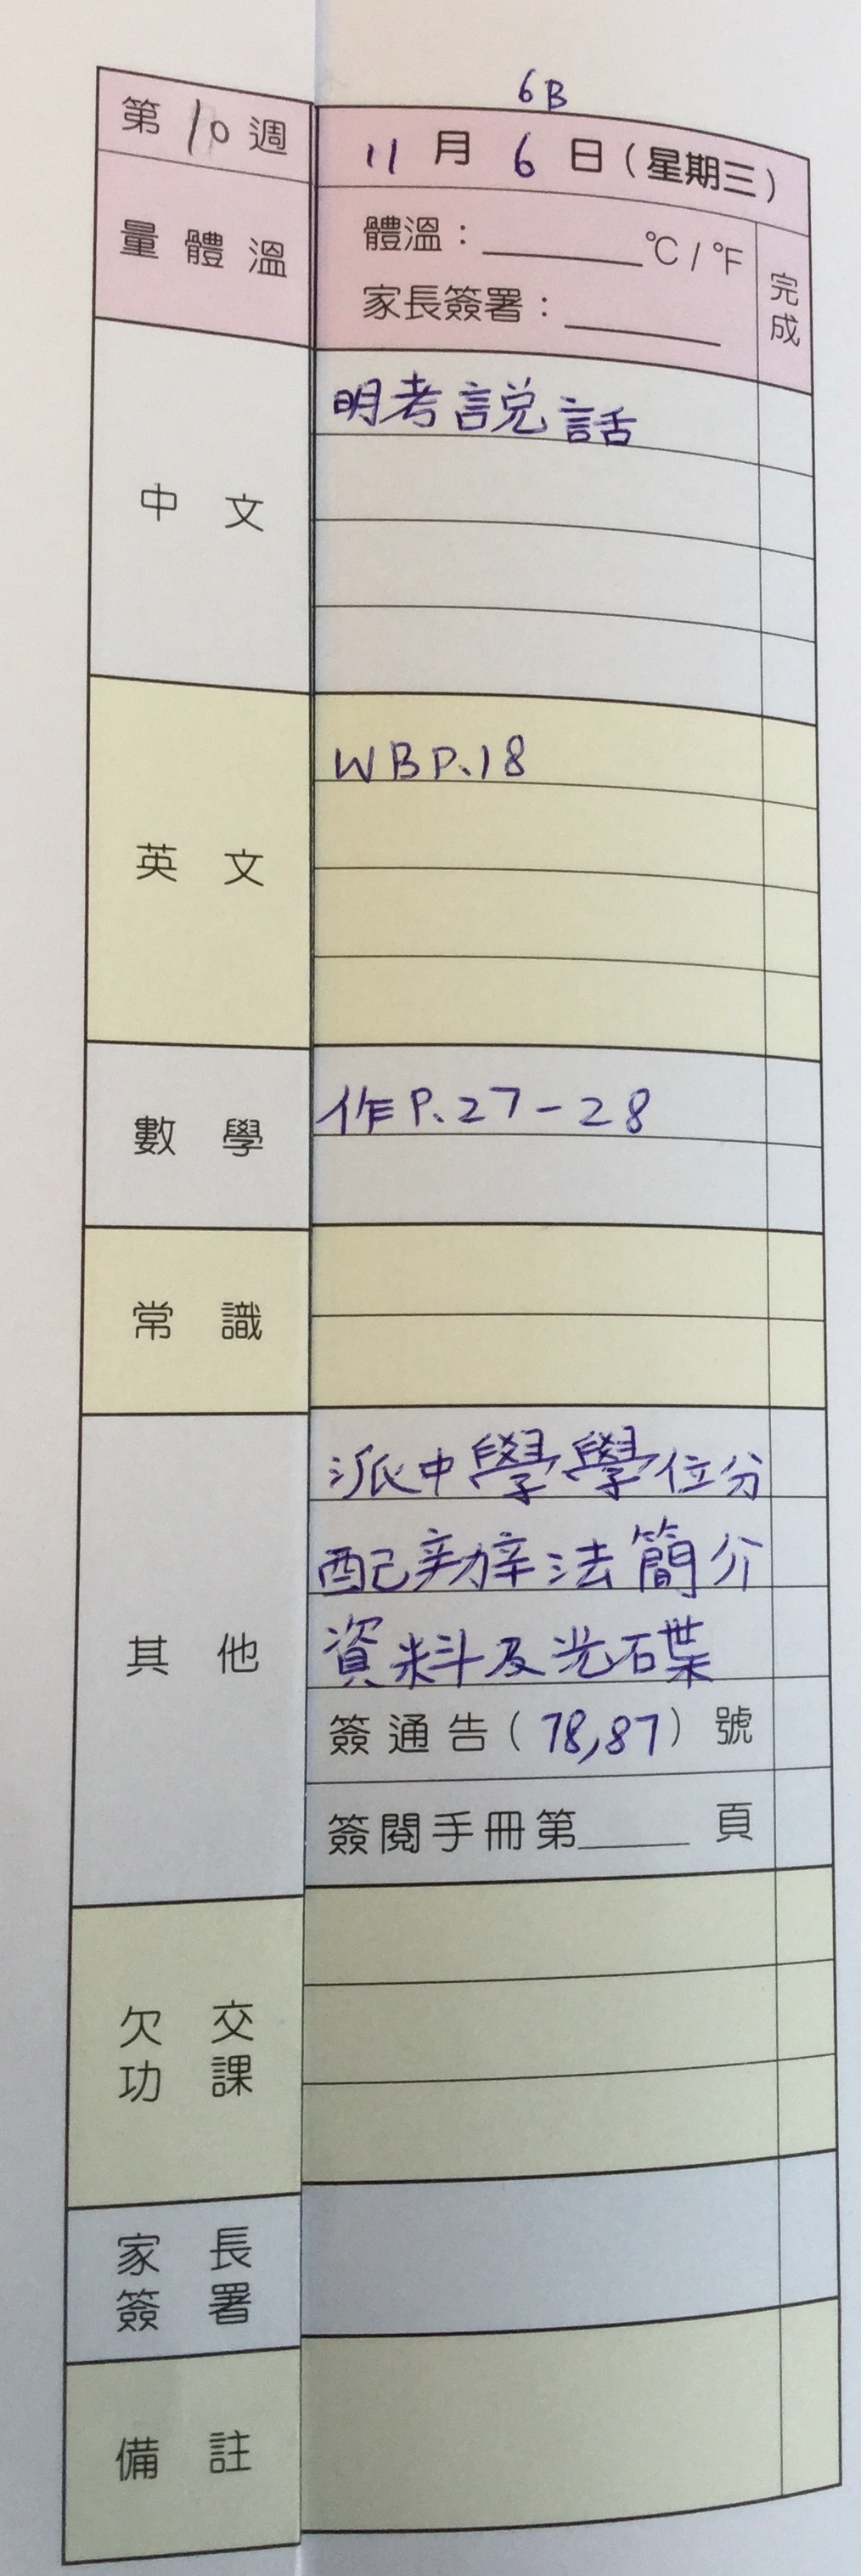 6B
第10週 11月6日(星期三)
量體溫 體溫：______℃/℉ 完成
家長簽署：______
中文 明考説話
英文 WB P.18
數學 作P.27-28
常識
其他 派中學學位分
配辦法簡介
資料及光碟
簽通告(78,87)號
簽閱手冊第____頁
欠交
功課
家長
簽署
備註